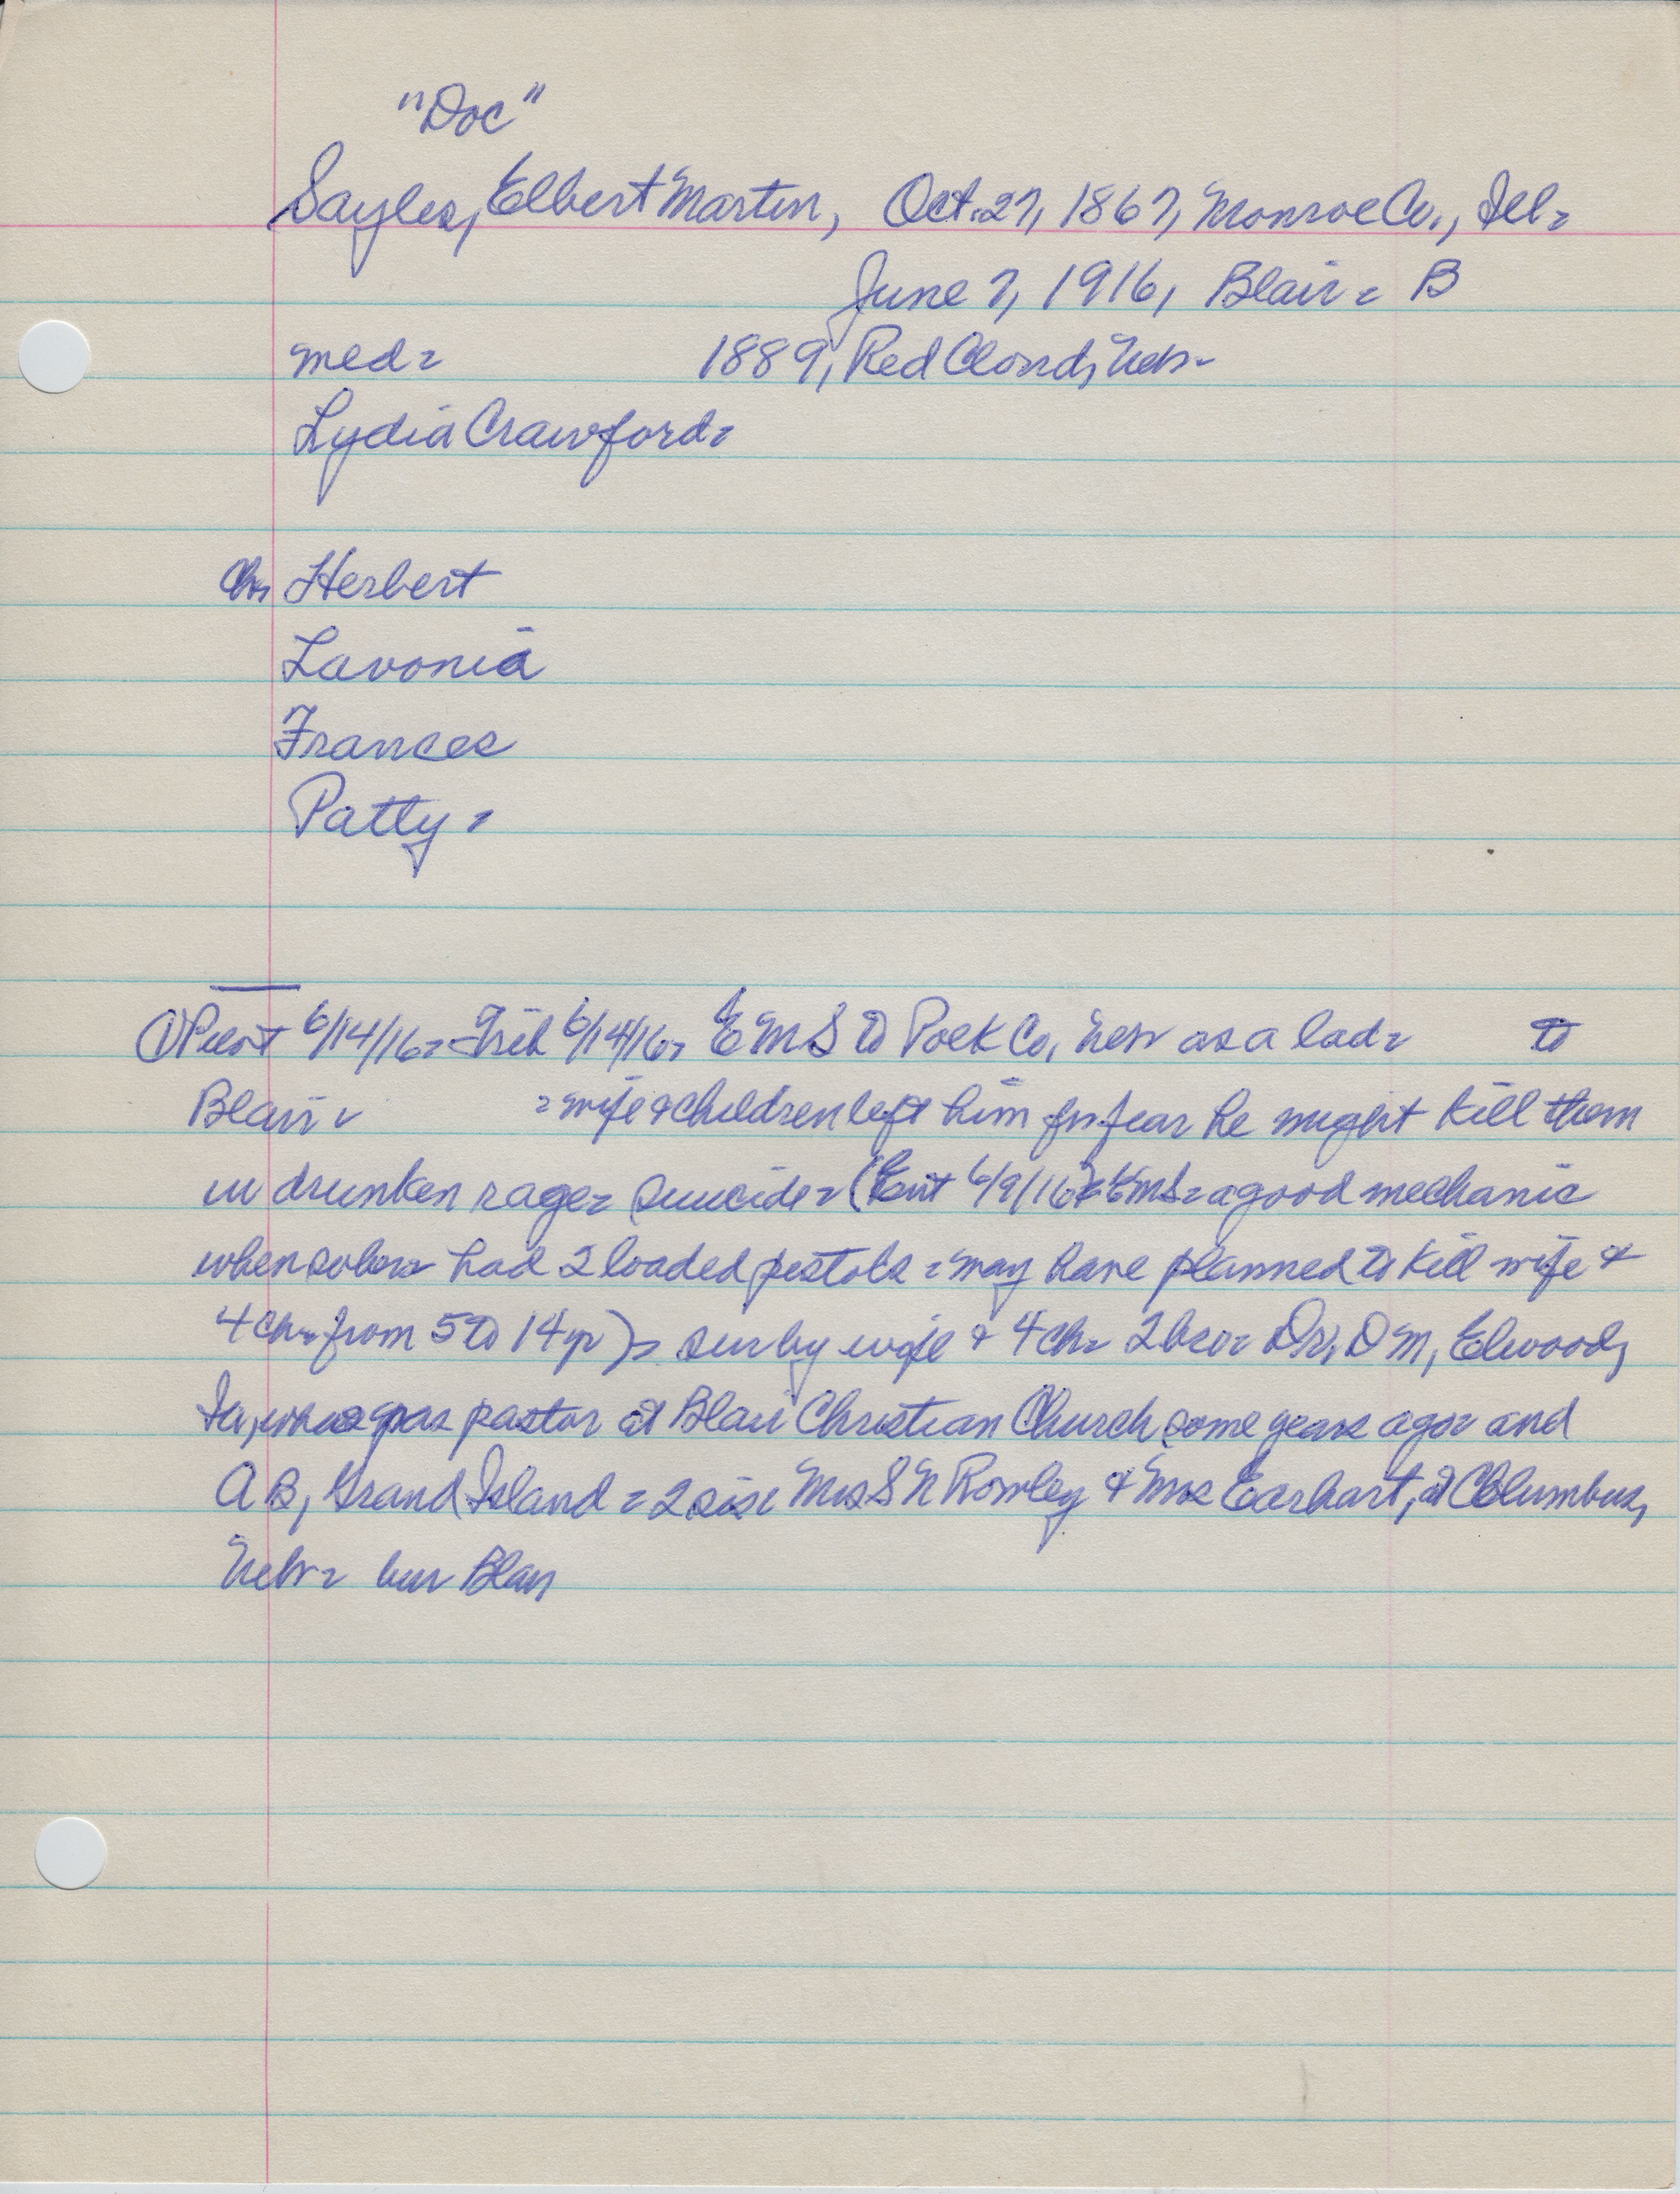 "Doc"
Sayles, Elbert Martin, Oct. 27, 1867, Monroe Co., Ill=
June 7, 1916, Blair = B
med= 1889, Red Cloud, Neb-
Lydia Crawford=
Ch, Herbert
Lavonia
Frances
Patty =
① Pilot 6/14/16= Trib 6/14/16= EMS to Polk Co, Nebr as a lad= to
Blair = = wife & children left him for fear he might kill them
in drunken rage= suicide= (Ent 6/9/16= EMS= a good mechanic
when sober= had 2 loaded pistols = may have planned to kill wife &
4 ch= from 5 to 14 yr)= sur by wife & 4 ch= 2 bro= Dr. D M, Elwood,
Ia, who was pastor at Blair Christian Church some years ago= and
A B, Grand Island = 2 sis= Mrs S N Rowley & Mrs Earhart, at Columbus,
Nebr= bur Blair